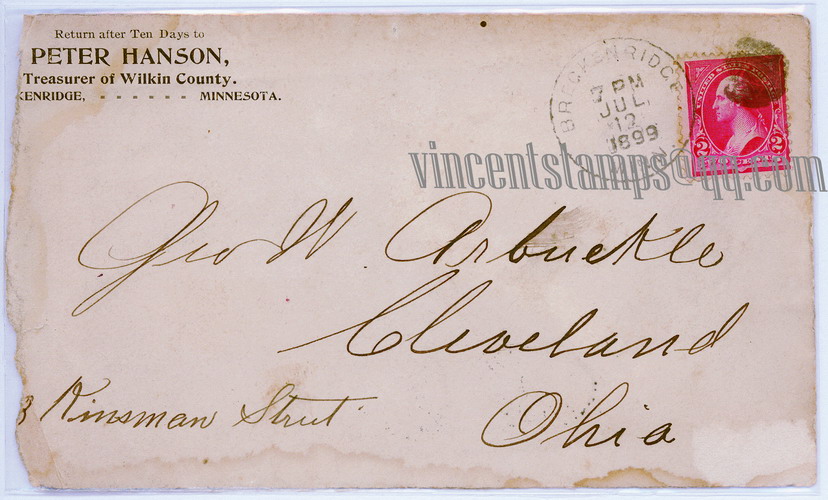 Return after Ten Days to
PETER HANSON,
Treasurer of Wilkin County.
KENRIDGE, - - - - - - MINNESOTA.
BRECKENRIDGE
7 PM
JUL
12
1899
UNITED STATES
2 2
vincentstamps@qq.com
Geo W. Arbuckle
Cleveland
Ohio
3 Kinsman Street